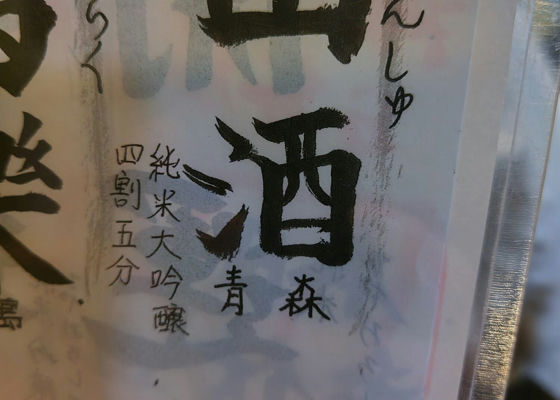 んしゅ
田酒
青森
純米大吟醸
四割五分
らく
楽
島